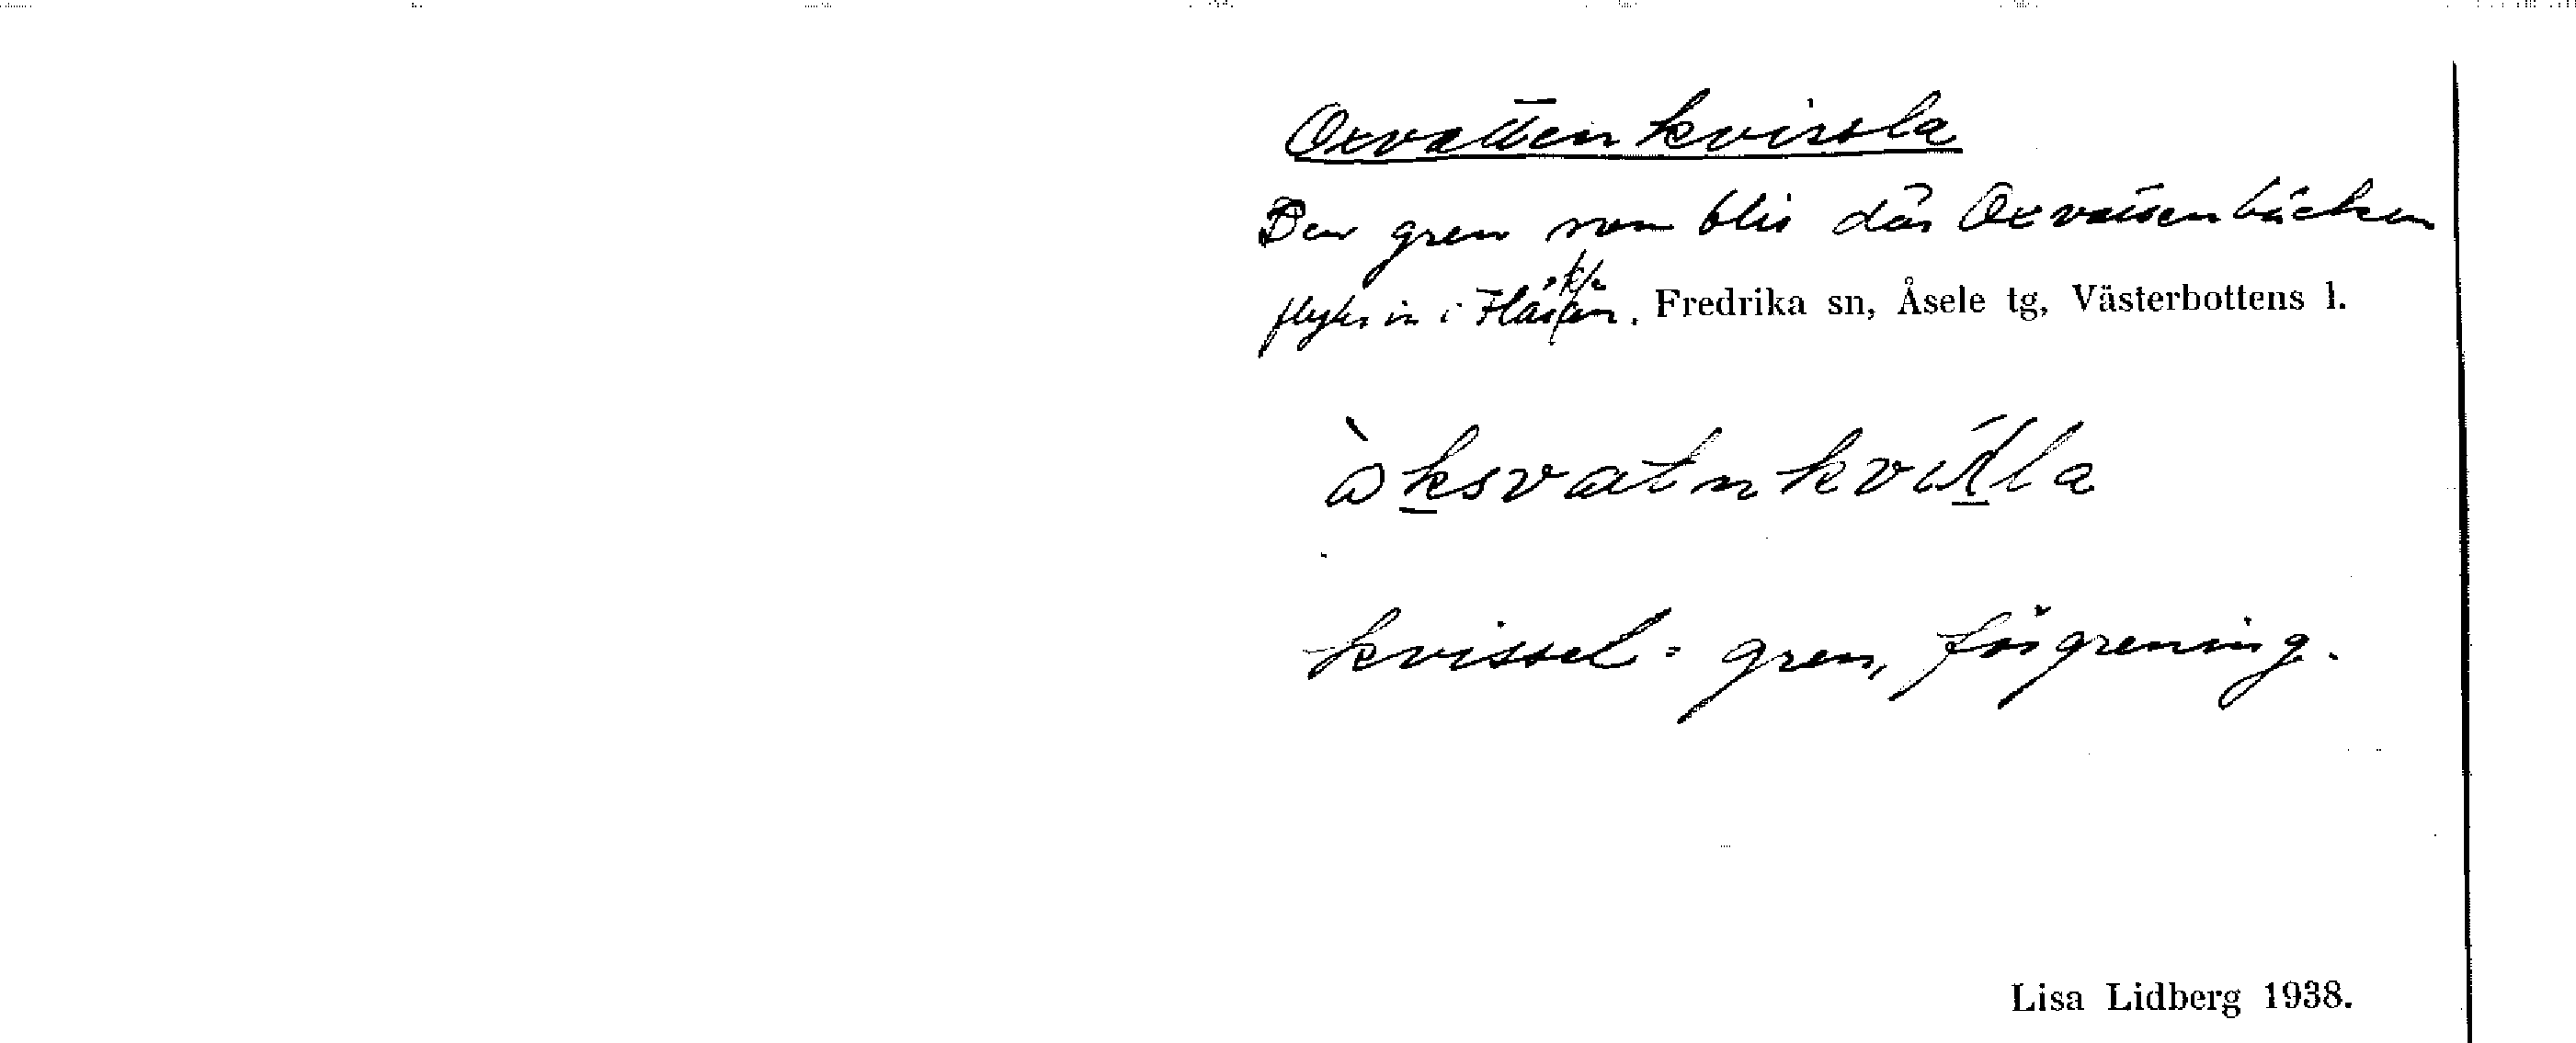 Oxvattenkvissla
Den gren som blir där Oxvattenbäcken
flyter in i Fredrika sn, Åsele tg, Västerbottens l.
kvissel = gren, förgrening.
Lisa Lidberg 1938.